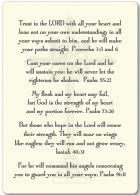 Trust in the LORD with all your heart and
lean not on your own understanding; in all
your ways submit to him, and he will make
your paths straight. Proverbs 3:5 and 6
Cast your cares on the LORD and he
will sustain you; he will never let the
righteous be shaken. Psalm 55:22
My flesh and my heart may fail,
but God is the strength of my heart
and my portion forever. Psalm 73:26
But those who hope in the LORD will renew
their strength. They will soar on wings
like eagles; they will run and not grow weary,
Isaiah 40:31
For he will command his angels concerning
you to guard you in all your ways; Psalm 91:11